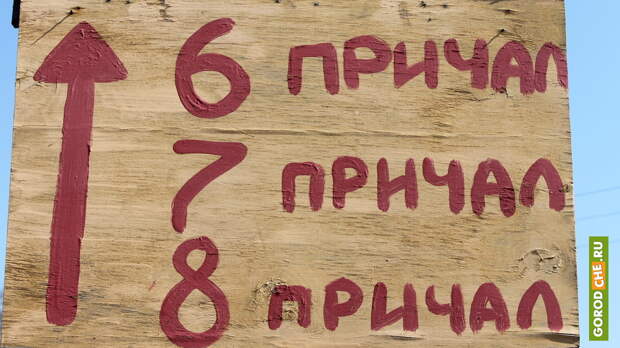 6 ПРИЧАЛ
7 ПРИЧАЛ
8 ПРИЧАЛ
GORODCHE.RU